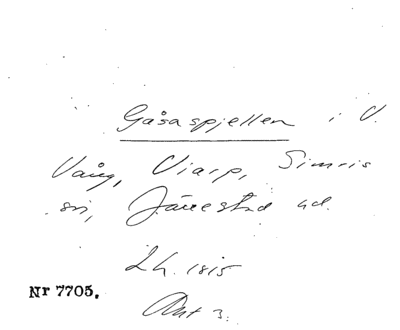 Gåsaspjellen i V.
Vång, Viarp, Simris
sn, Järrestad hd.
Lh. 1815
Nr 7705.
Akt 3.